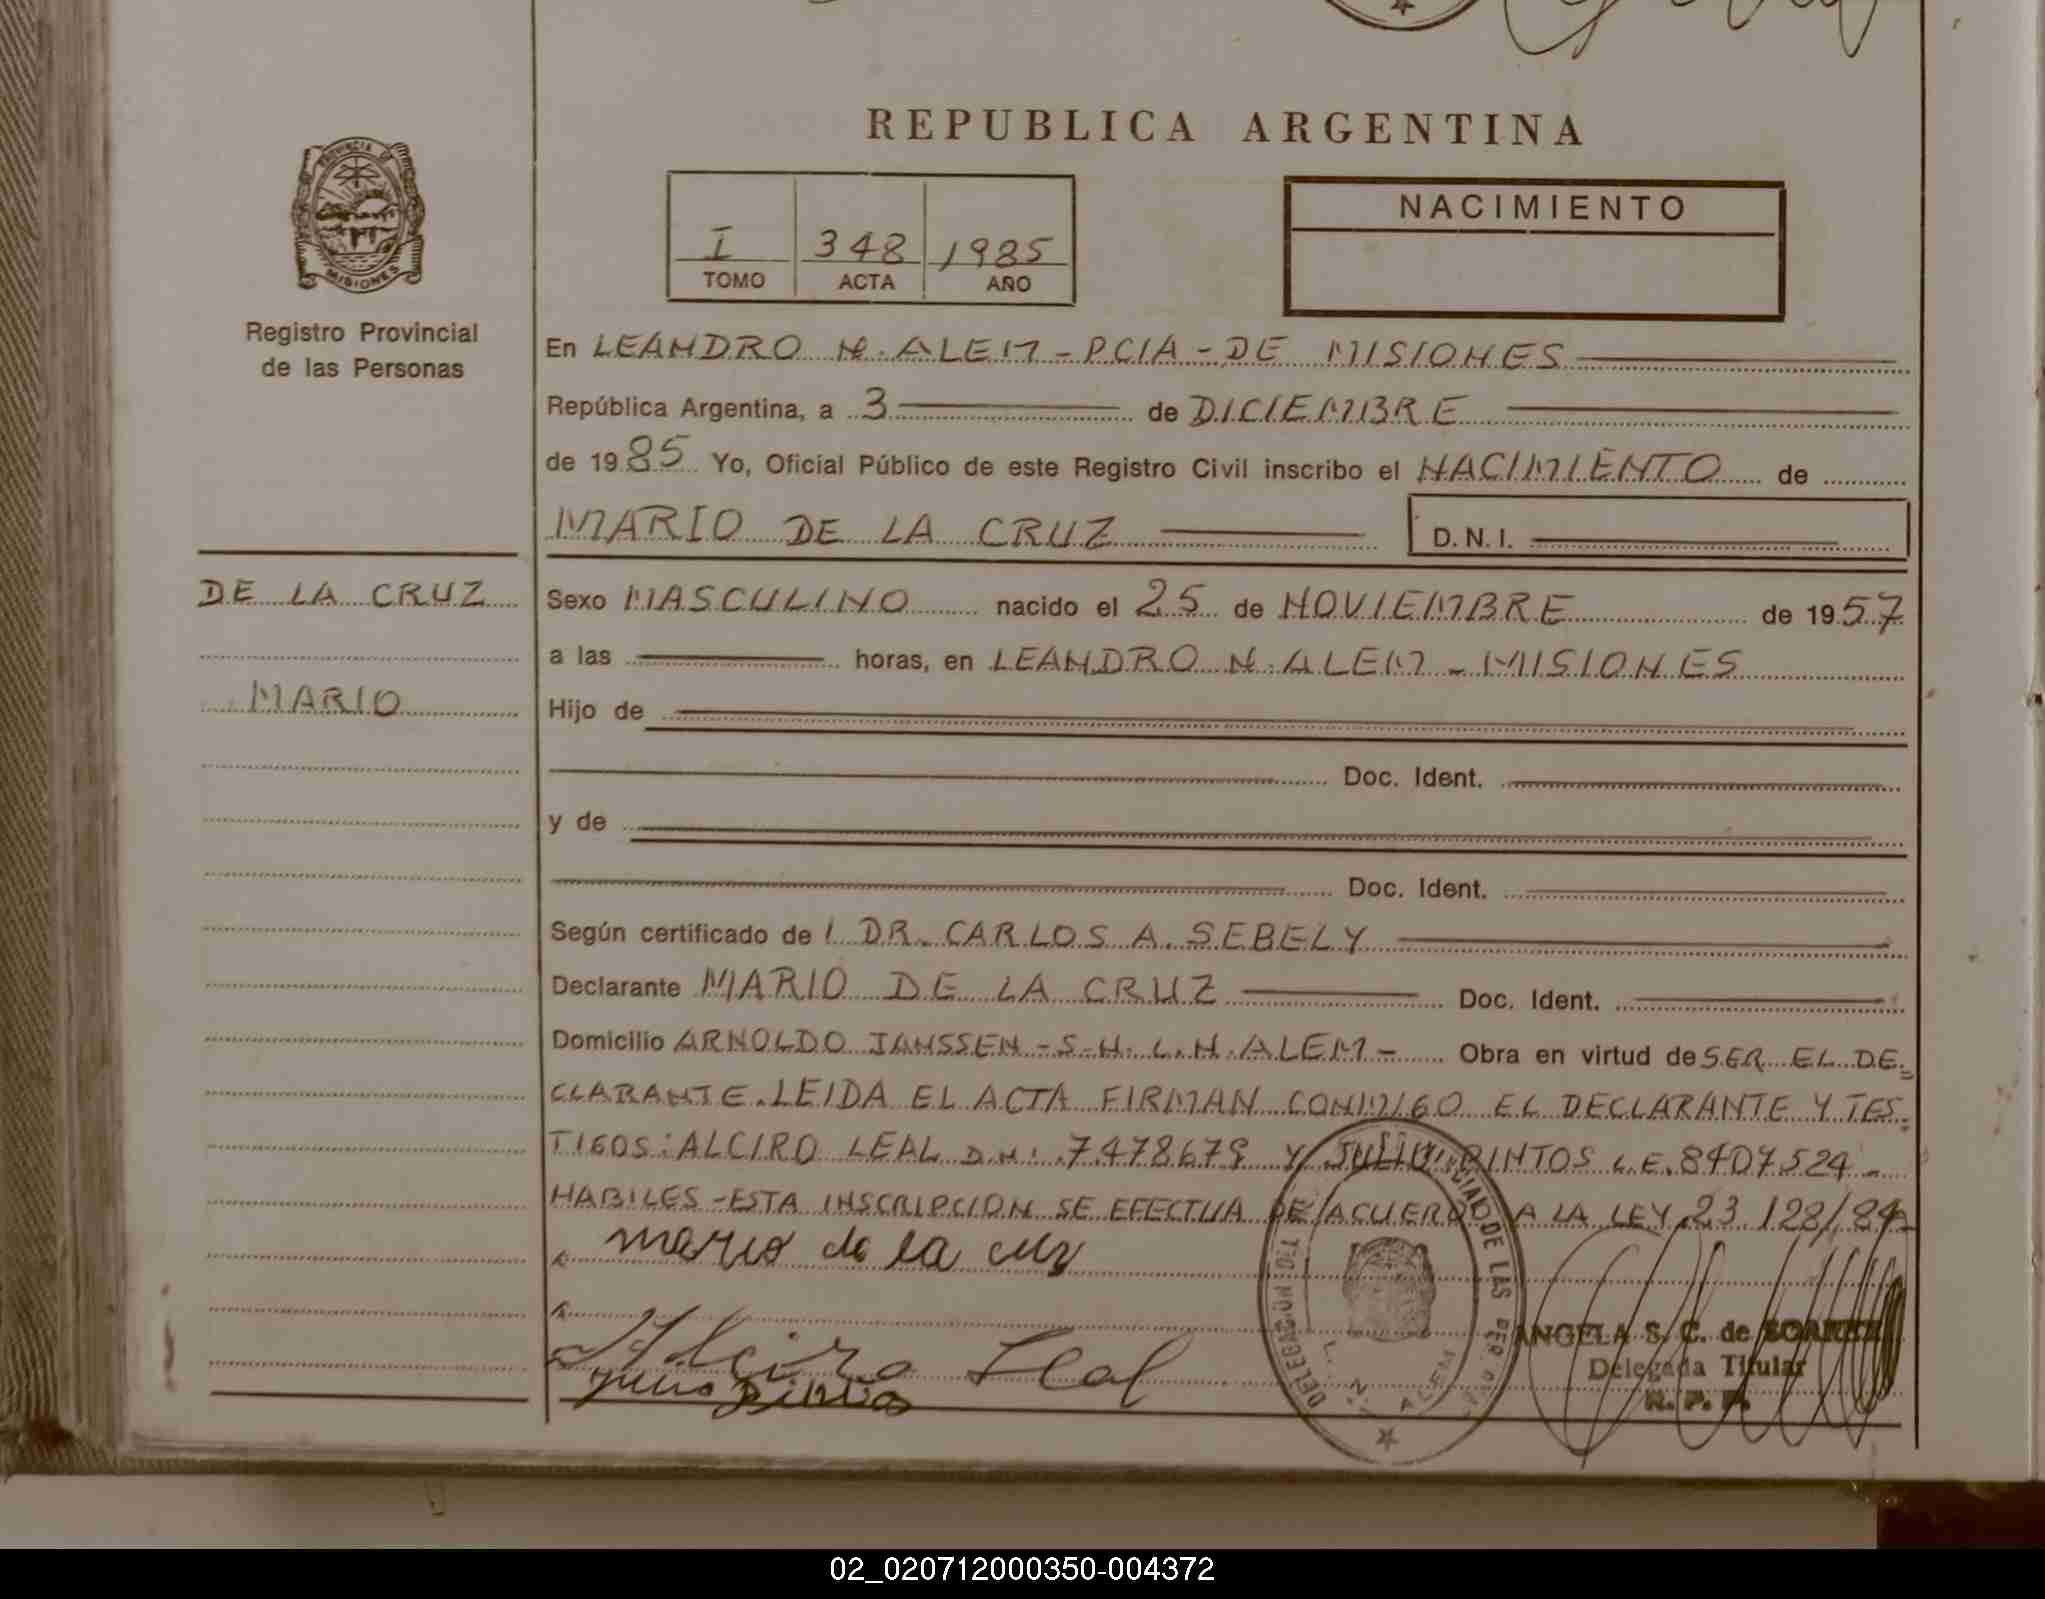 REPUBLICA ARGENTINA
PROVINCIA DE
MISIONES
Registro Provincial
de las Personas
I 348 1985
TOMO ACTA AÑO
NACIMIENTO
En LEANDRO N. ALEM - PCIA - DE MISIONES
República Argentina, a 3 de DICIEMBRE
de 1985 Yo, Oficial Público de este Registro Civil inscribo el NACIMIENTO de
MARIO DE LA CRUZ D.N.I.
DE LA CRUZ
MARIO
Sexo MASCULINO nacido el 25 de NOVIEMBRE de 1957
a las horas, en LEANDRO N. ALEM - MISIONES
Hijo de
Doc. Ident.
y de
Doc. Ident.
Según certificado de 1 DR. CARLOS A. SEBELY
Declarante MARIO DE LA CRUZ Doc. Ident.
Domicilio ARNOLDO JANSSEN - S-N. L.N. ALEM - Obra en virtud de SER EL DE=
CLARANTE. LEIDA EL ACTA FIRMAN CONMIGO EL DECLARANTE Y TES=
TIGOS: ALCIRO LEAL D.N.I. 7478679 Y JULIO PINTOS L.E. 8407524 -
HABILES - ESTA INSCRIPCION SE EFECTUA DE ACUERDO A LA LEY 23 128/84
mario de la cruz
Alciro Leal
Julio Pintos
DELEGACIÓN
DE LAS PER
L. N. ALEM
ANGELA S. C. de
Delegada Titular
R. P. P.
02_020712000350-004372